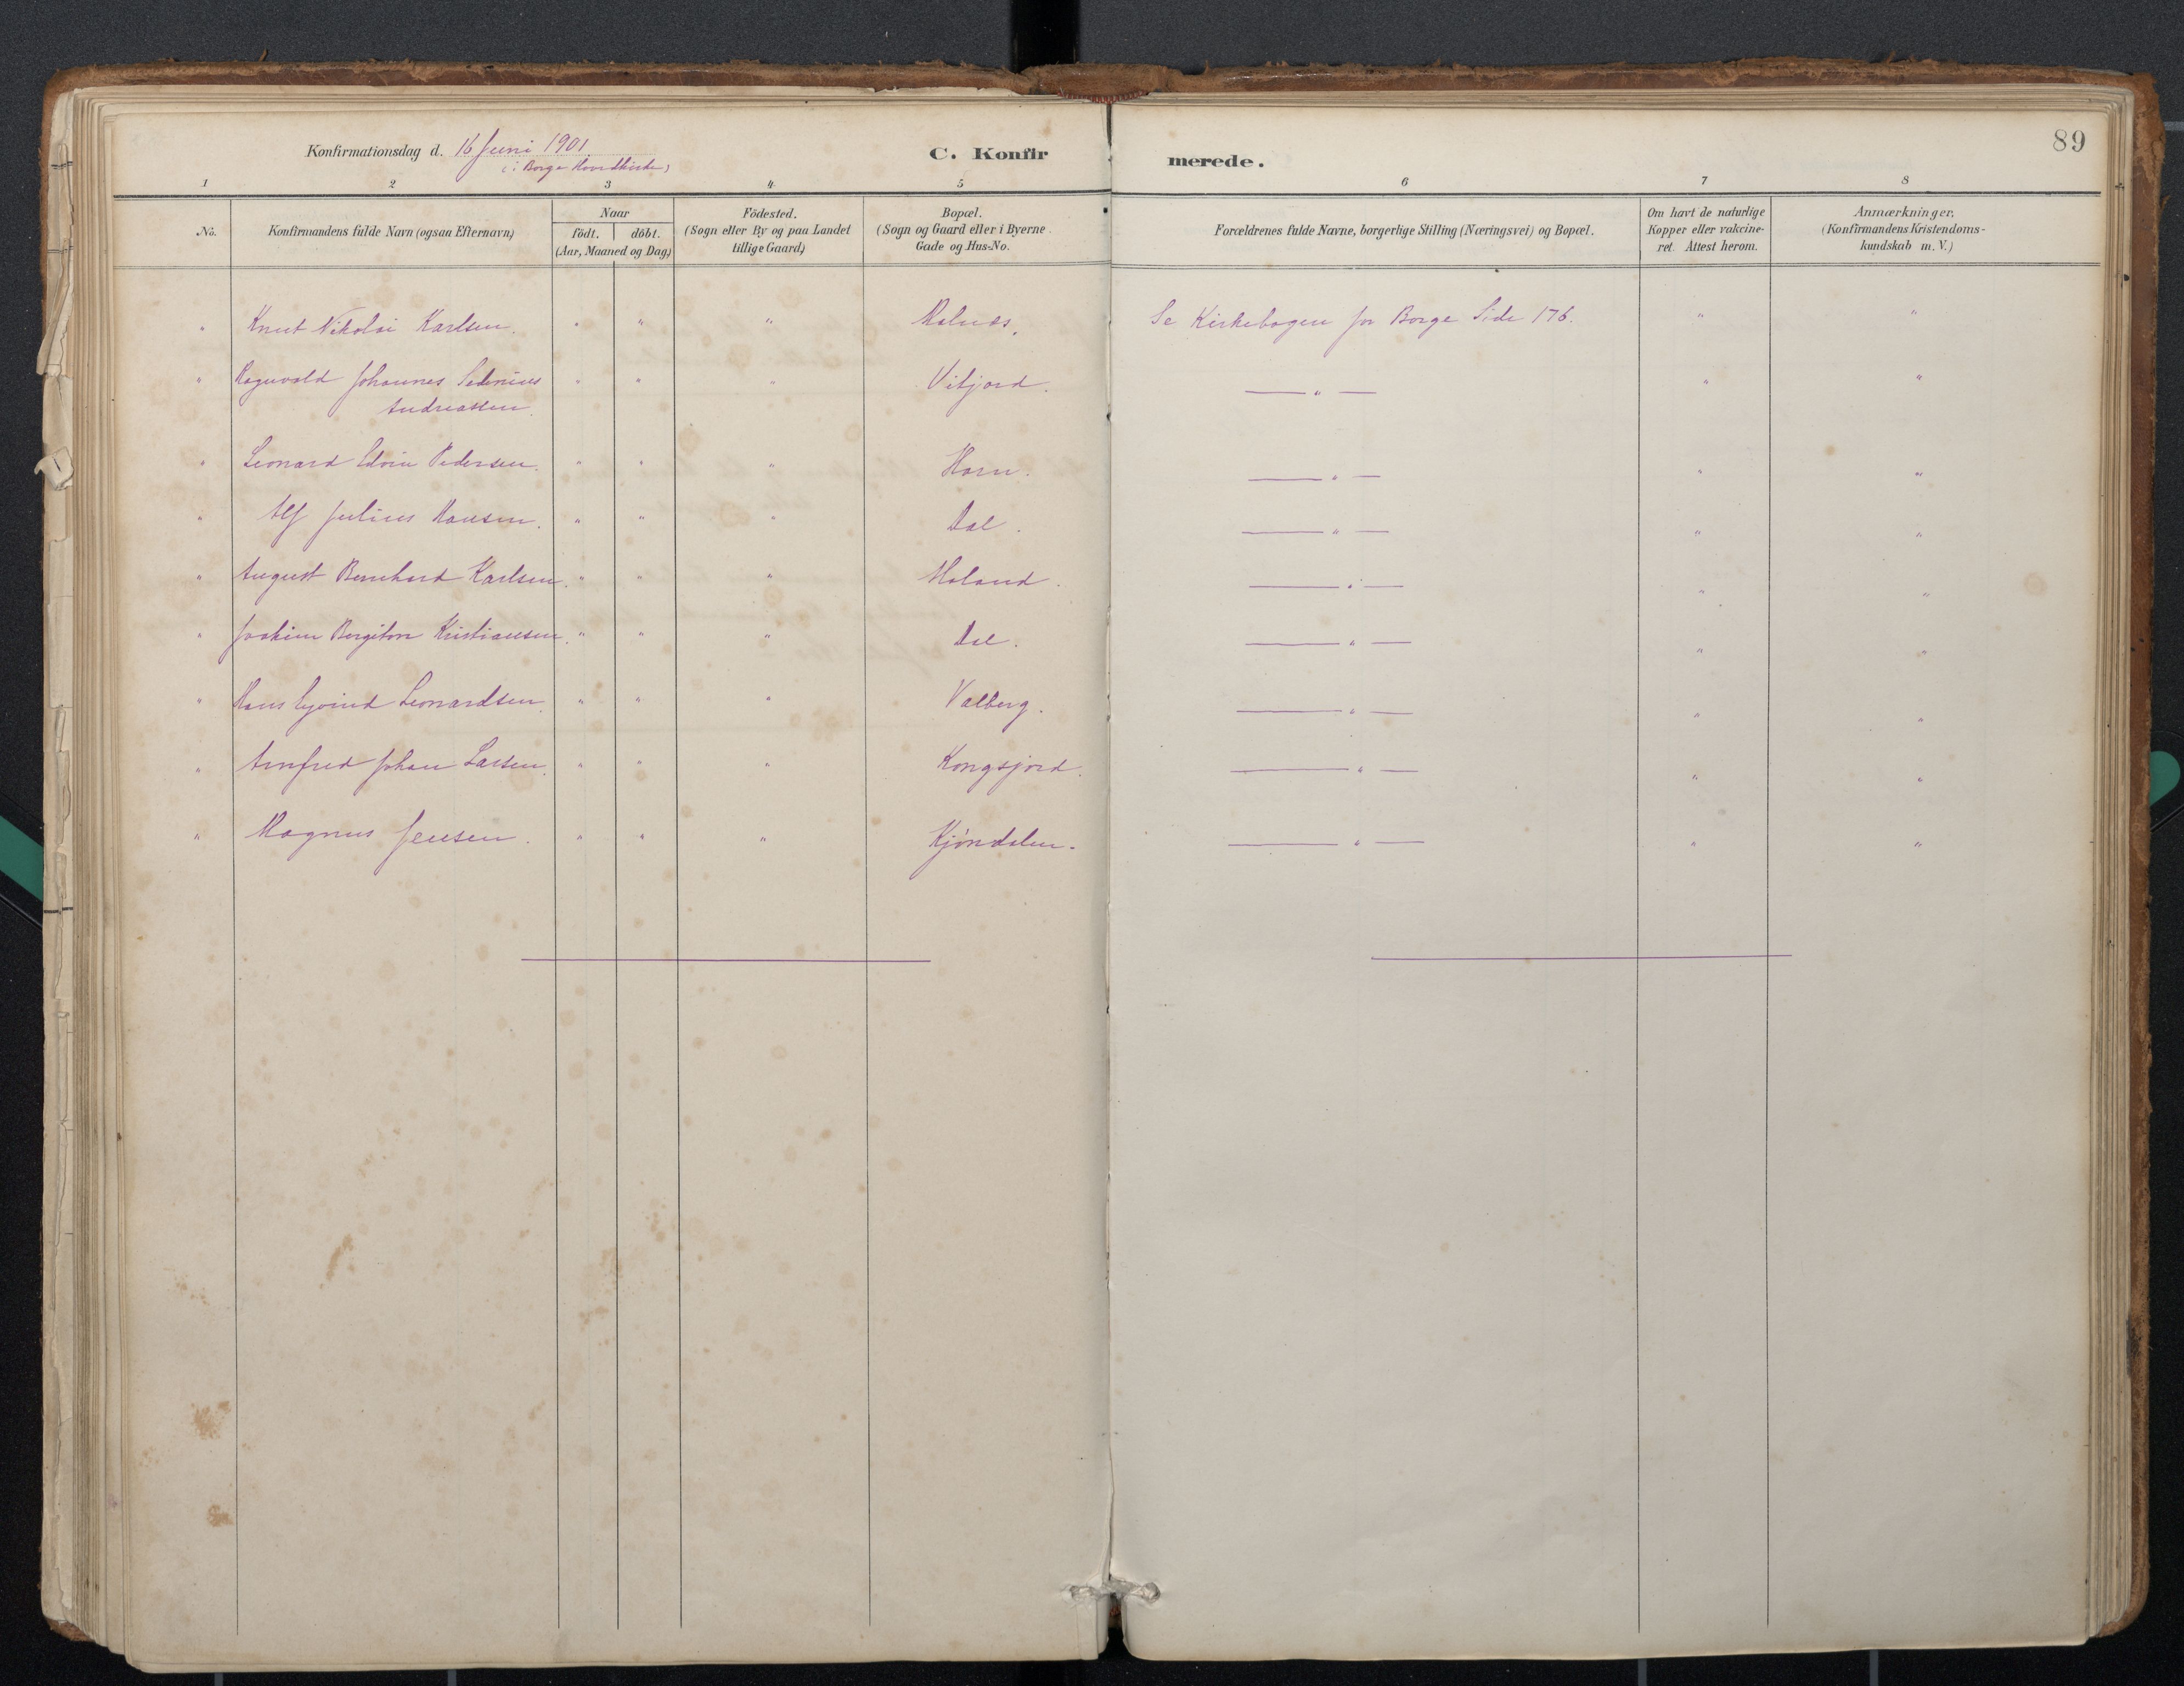 89
Konfirmationsdag d. 16 Juni 1901.
(i Borge Hovedkirke)
C. Konfirmerede.
1 2 3 4 5 6 7 8
No.
Konfirmandens fulde Navn (ogsaa Efternavn)
Naar
födt. döbt.
(Aar, Maaned og Dag)
Födested.
(Sogn eller By og paa Landet
tillige Gaard)
Bopæl.
(Sogn og Gaard eller i Byerne
Gade og Hus-No.
Forældrenes fulde Navne, borgerlige Stilling (Næringsvei) og Bopæl.
Om havt de naturlige
Kopper eller vakcine-
ret. Attest herom.
Anmærkninger.
(Konfirmandens Kristendoms-
kundskab m. V.)
" Knut Nikolai Karlsen. " " " Se Kirkebogen for Borge Side 176. " "
" Ragnvald Johannes " " " Vitjord. — " — " "
Andreassen.
" Leonard Edvin Pedersen. " " " Horn. — " — " "
" Alf Julius Hansen. " " " Dal. — " — " "
" August Bernhard Karlsen. " " " Holand. — " — " "
" Joakim Bergiton Kristiansen. " " " Dal. — " — " "
" Hans Ejvind Leonardsen. " " " Valberg. — " — " "
" Arnfred Johan Larsen. " " " Kongsjord. — " — " "
" Magnus Jensen. " " " Kjöndalen. — " — " "